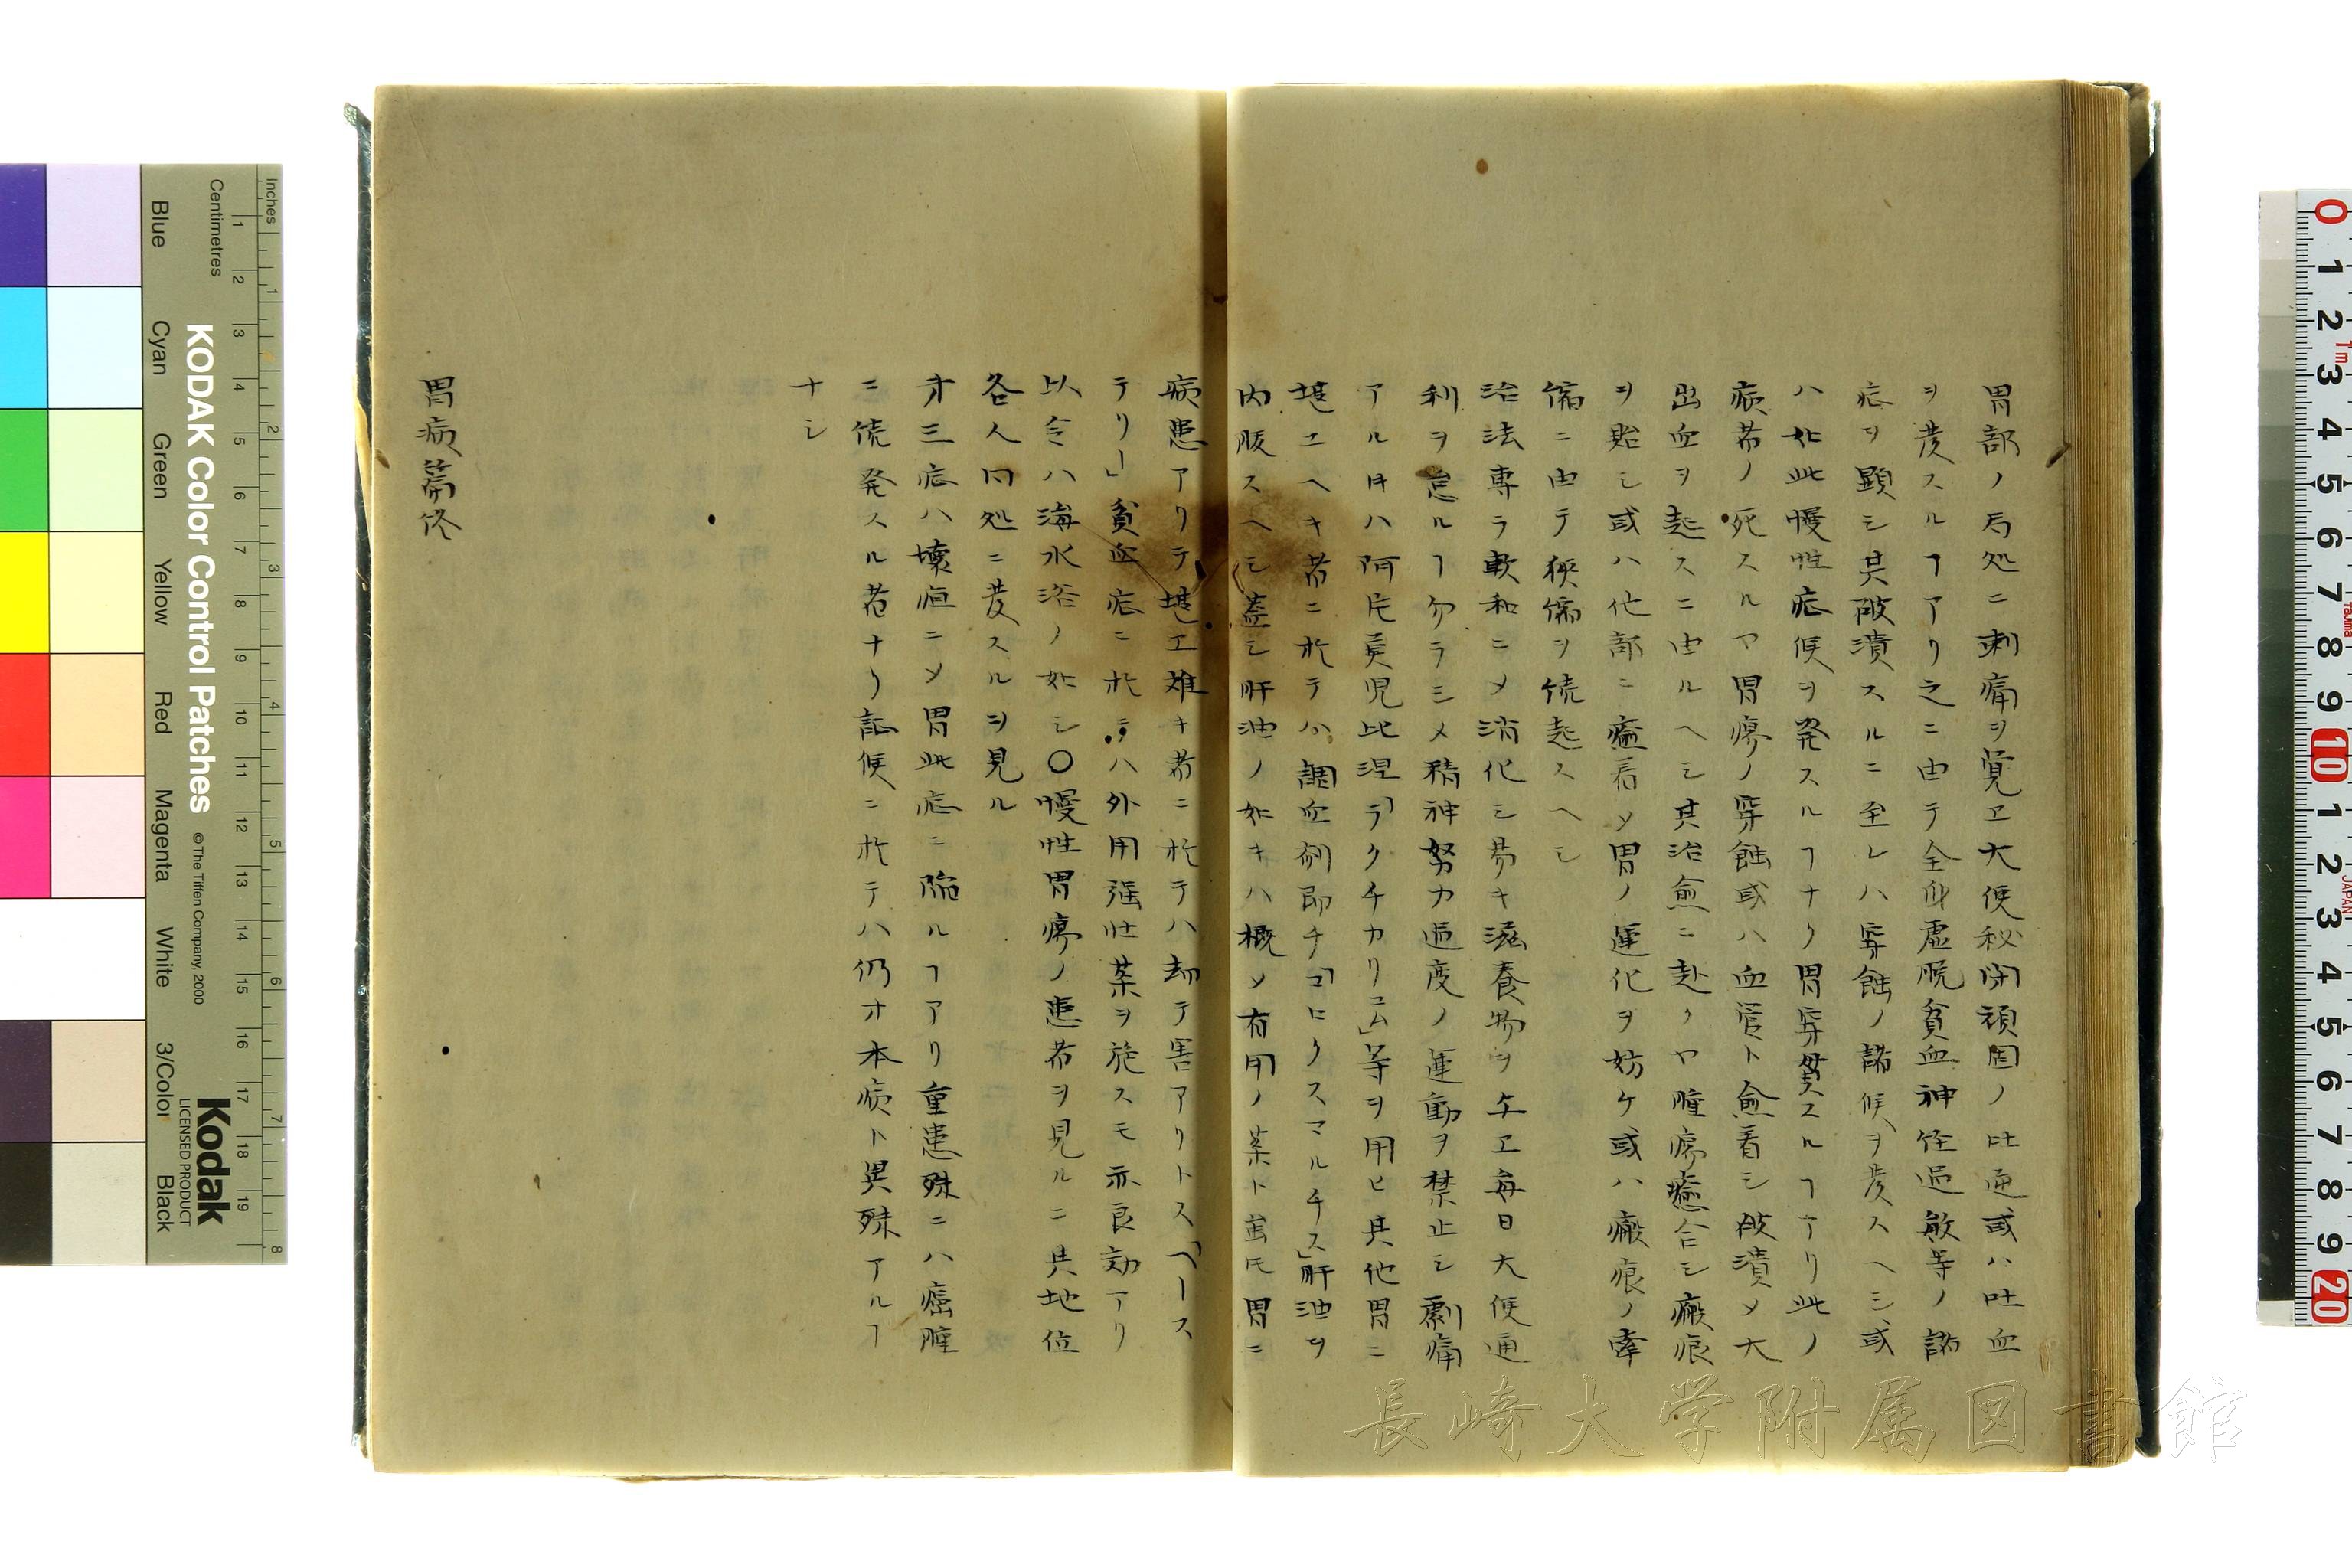 胃部ノ局処ニ刺痛ヲ覚エ大便秘閉頑固ノ吐逆或ハ吐血
ヲ発スルヿアリ之ニ由テ全身虚脱貧血神経過敏等ノ諸
症ヲ顕シ其破潰スルニ至レハ穿蝕ノ諸候ヲ発スヘシ或
ハ如此慢性症候ヲ発スルヿナク胃穿貫スルヿアリ此ノ
病者ノ死スルヤ胃瘍ノ穿蝕或ハ血管ト愈着シ破潰メ大
出血ヲ起スニ由ルヘシ其治愈ニ赴クヤ腫瘍癒合シ瘢痕
ヲ貽シ或ハ他部ニ癒着メ胃ノ運化ヲ妨ケ或ハ瘢痕ノ牽
縮ニ由テ狭縮ヲ続起スヘシ
治法専ラ軟和ニメ消化シ易キ滋養物ヲ与エ毎日大便通
利ヲ怠ルヿ勿ラシメ精神努力過度ノ運動ヲ禁止シ劇痛
アル時ハ阿片莨児比涅「ラクチカリユム」等ヲ用ヒ其他胃ニ
堪エヘキ者ニ於テハ調血剤即チ「コヒクスマルチス」肝油ヲ
内服スヘシ蓋シ肝油ノ如キハ概メ有用ノ薬ト雖モ胃ニ
病患アリテ堪エ難キ者ニ於テハ却テ害アリトス「ヘース
テリー」貧血症ニ於テハ外用強壮薬ヲ施スモ亦良効アリ
以令ハ海水浴ノ如シ〇慢性胃瘍ノ患者ヲ見ルニ其地位
各人同処ニ発スルヲ見ル
才三症ハ壊疽ニメ胃此症ニ陥ルヿアリ重患殊ニハ癌腫
ニ続発スル者ナリ証候ニ於テハ仍才本病ト異殊アルヿ
ナシ
胃病篇終
KODAK Color Control Patches
© The Tiffen Company, 2000
Kodak
LICENSED PRODUCT
Inches
Centimetres
Blue Cyan Green Yellow Red Magenta White 3/Color Black
長崎大学附属図書館